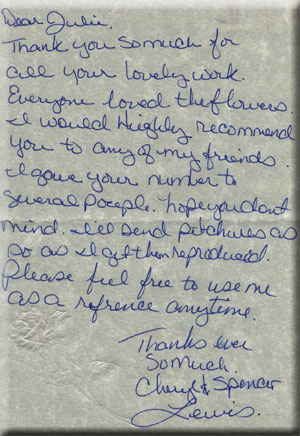 Dear Julie.
Thank you so much for
all your lovely work.
Everyone loved the flowers.
I would Highly recommend
you to any of my friends.
I gave your number to
several poeple. hope you dont
mind. I'll send pitchures as
so as I get them reproduced.
Please feel free to use me
as a refrence anytime.
Thanks ever
so much.
Cheryl & Spencer
Lewis.